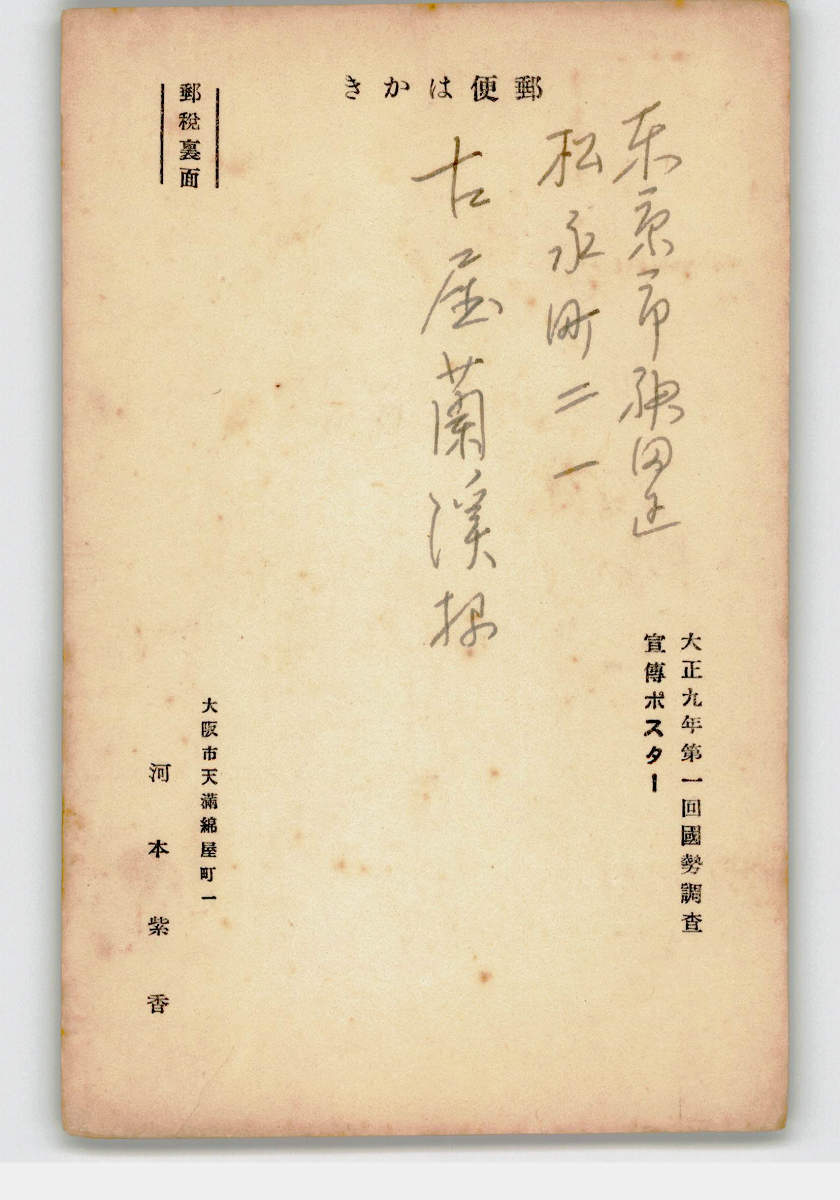 郵便はかき
東京市神田区
松永町二一
古屋蘭渓様
大正九年第一回國勢調査
宣傳ポスター
郵税裏面
大阪市天滿綿屋町一
河本紫香